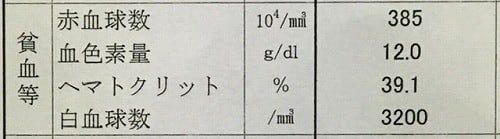 貧血等
赤血球数 10⁴/mm³ 385
血色素量 g/dl 12.0
ヘマトクリット % 39.1
白血球数 /mm³ 3200